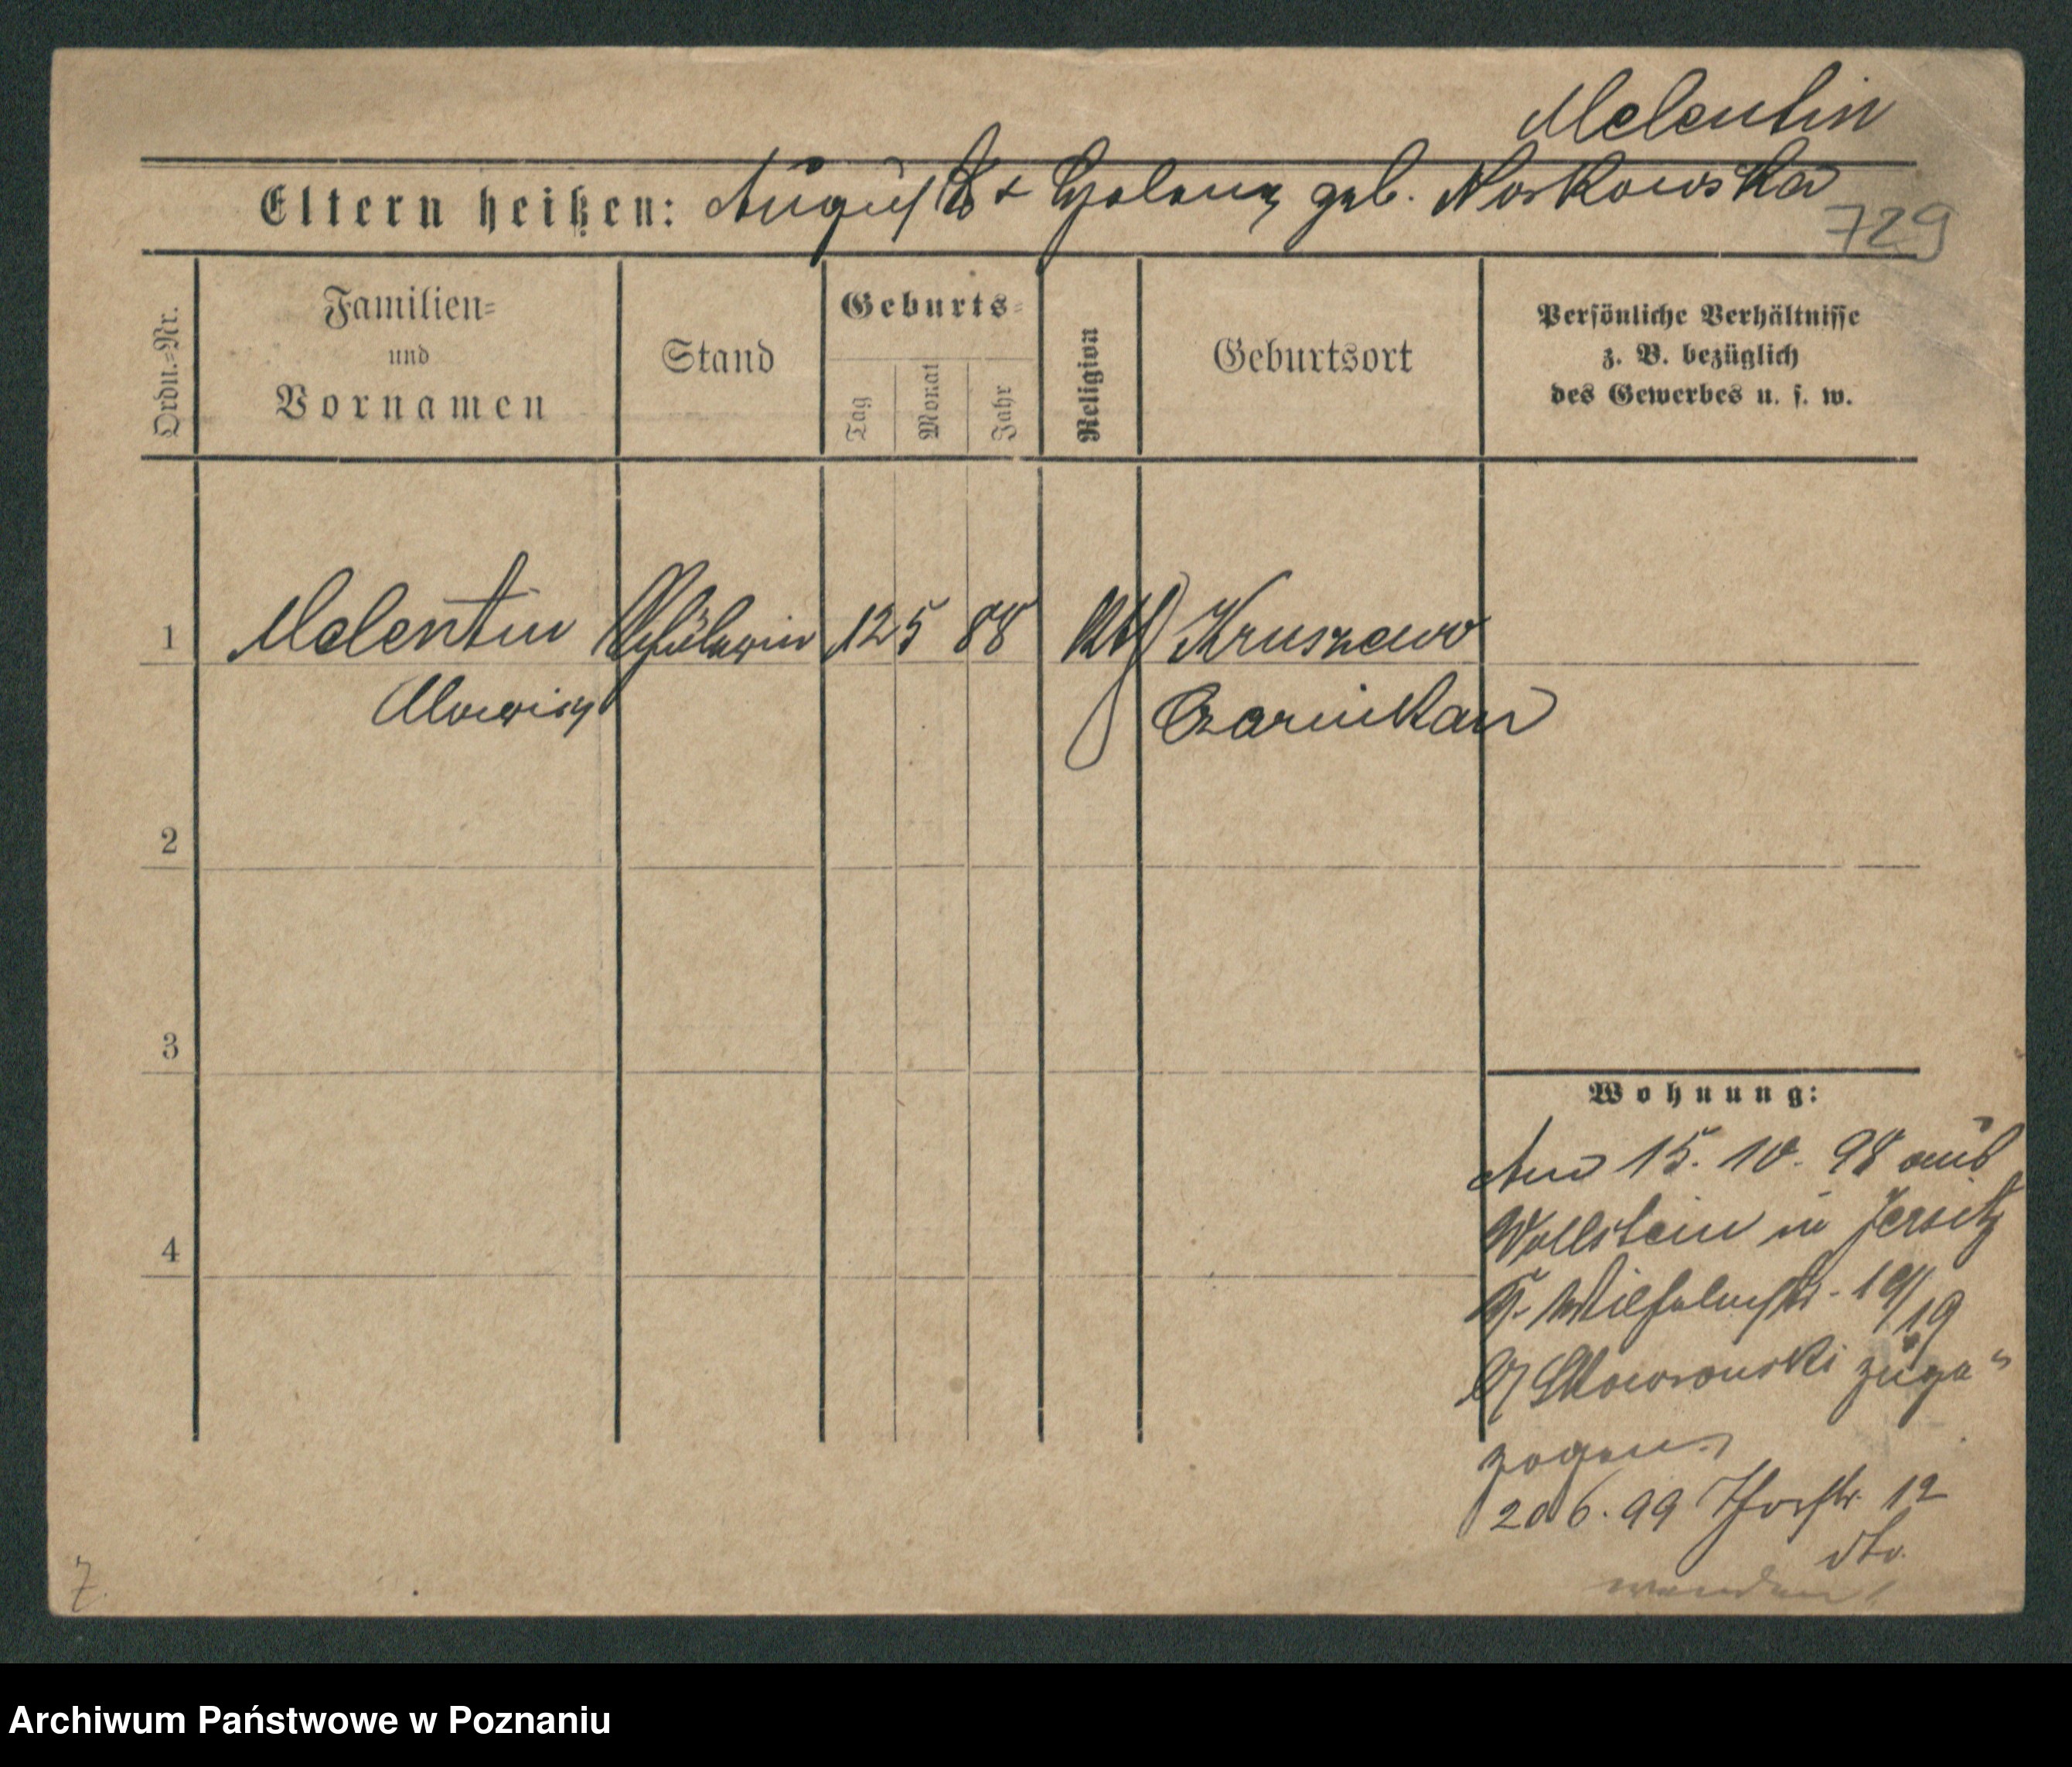 Melentin
Eltern heißen: August & Helene geb. Noskowska
729
Ordn.=Nr.
Familien=
und
Vornamen
Stand
Geburts=
Tag
Monat
Jahr
Religion
Geburtsort
Persönliche Verhältnisse
z. B. bezüglich
des Gewerbes u. s. w.
1 Melentin Schülerin 12 5 88 Kth Kruszewo
Czarnikau
2
3
4
Wohnung:
Am 15. 10. 98 aus
Wollstein in Jersitz
Wilhelmstr. 18/19
b/ Skowronski zuge"
zogen.
20 6. 99 Thorstr. 12
dto.
wenden!
Z.
Archiwum Państwowe w Poznaniu